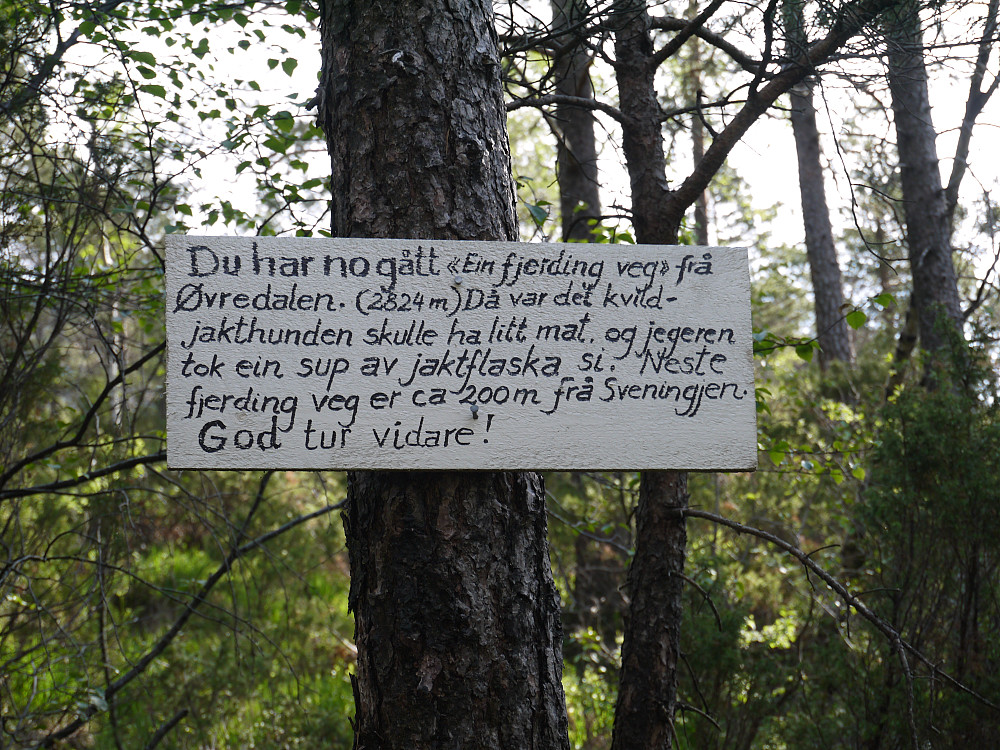 Du har no gått «Ein fjerding veg» frå
Øvredalen. (2824 m) Då var det kvild-
jakthunden skulle ha litt mat, og jegeren
tok ein sup av jaktflaska si. Neste
fjerding veg er ca 200m frå Sveningjen.
God tur vidare!